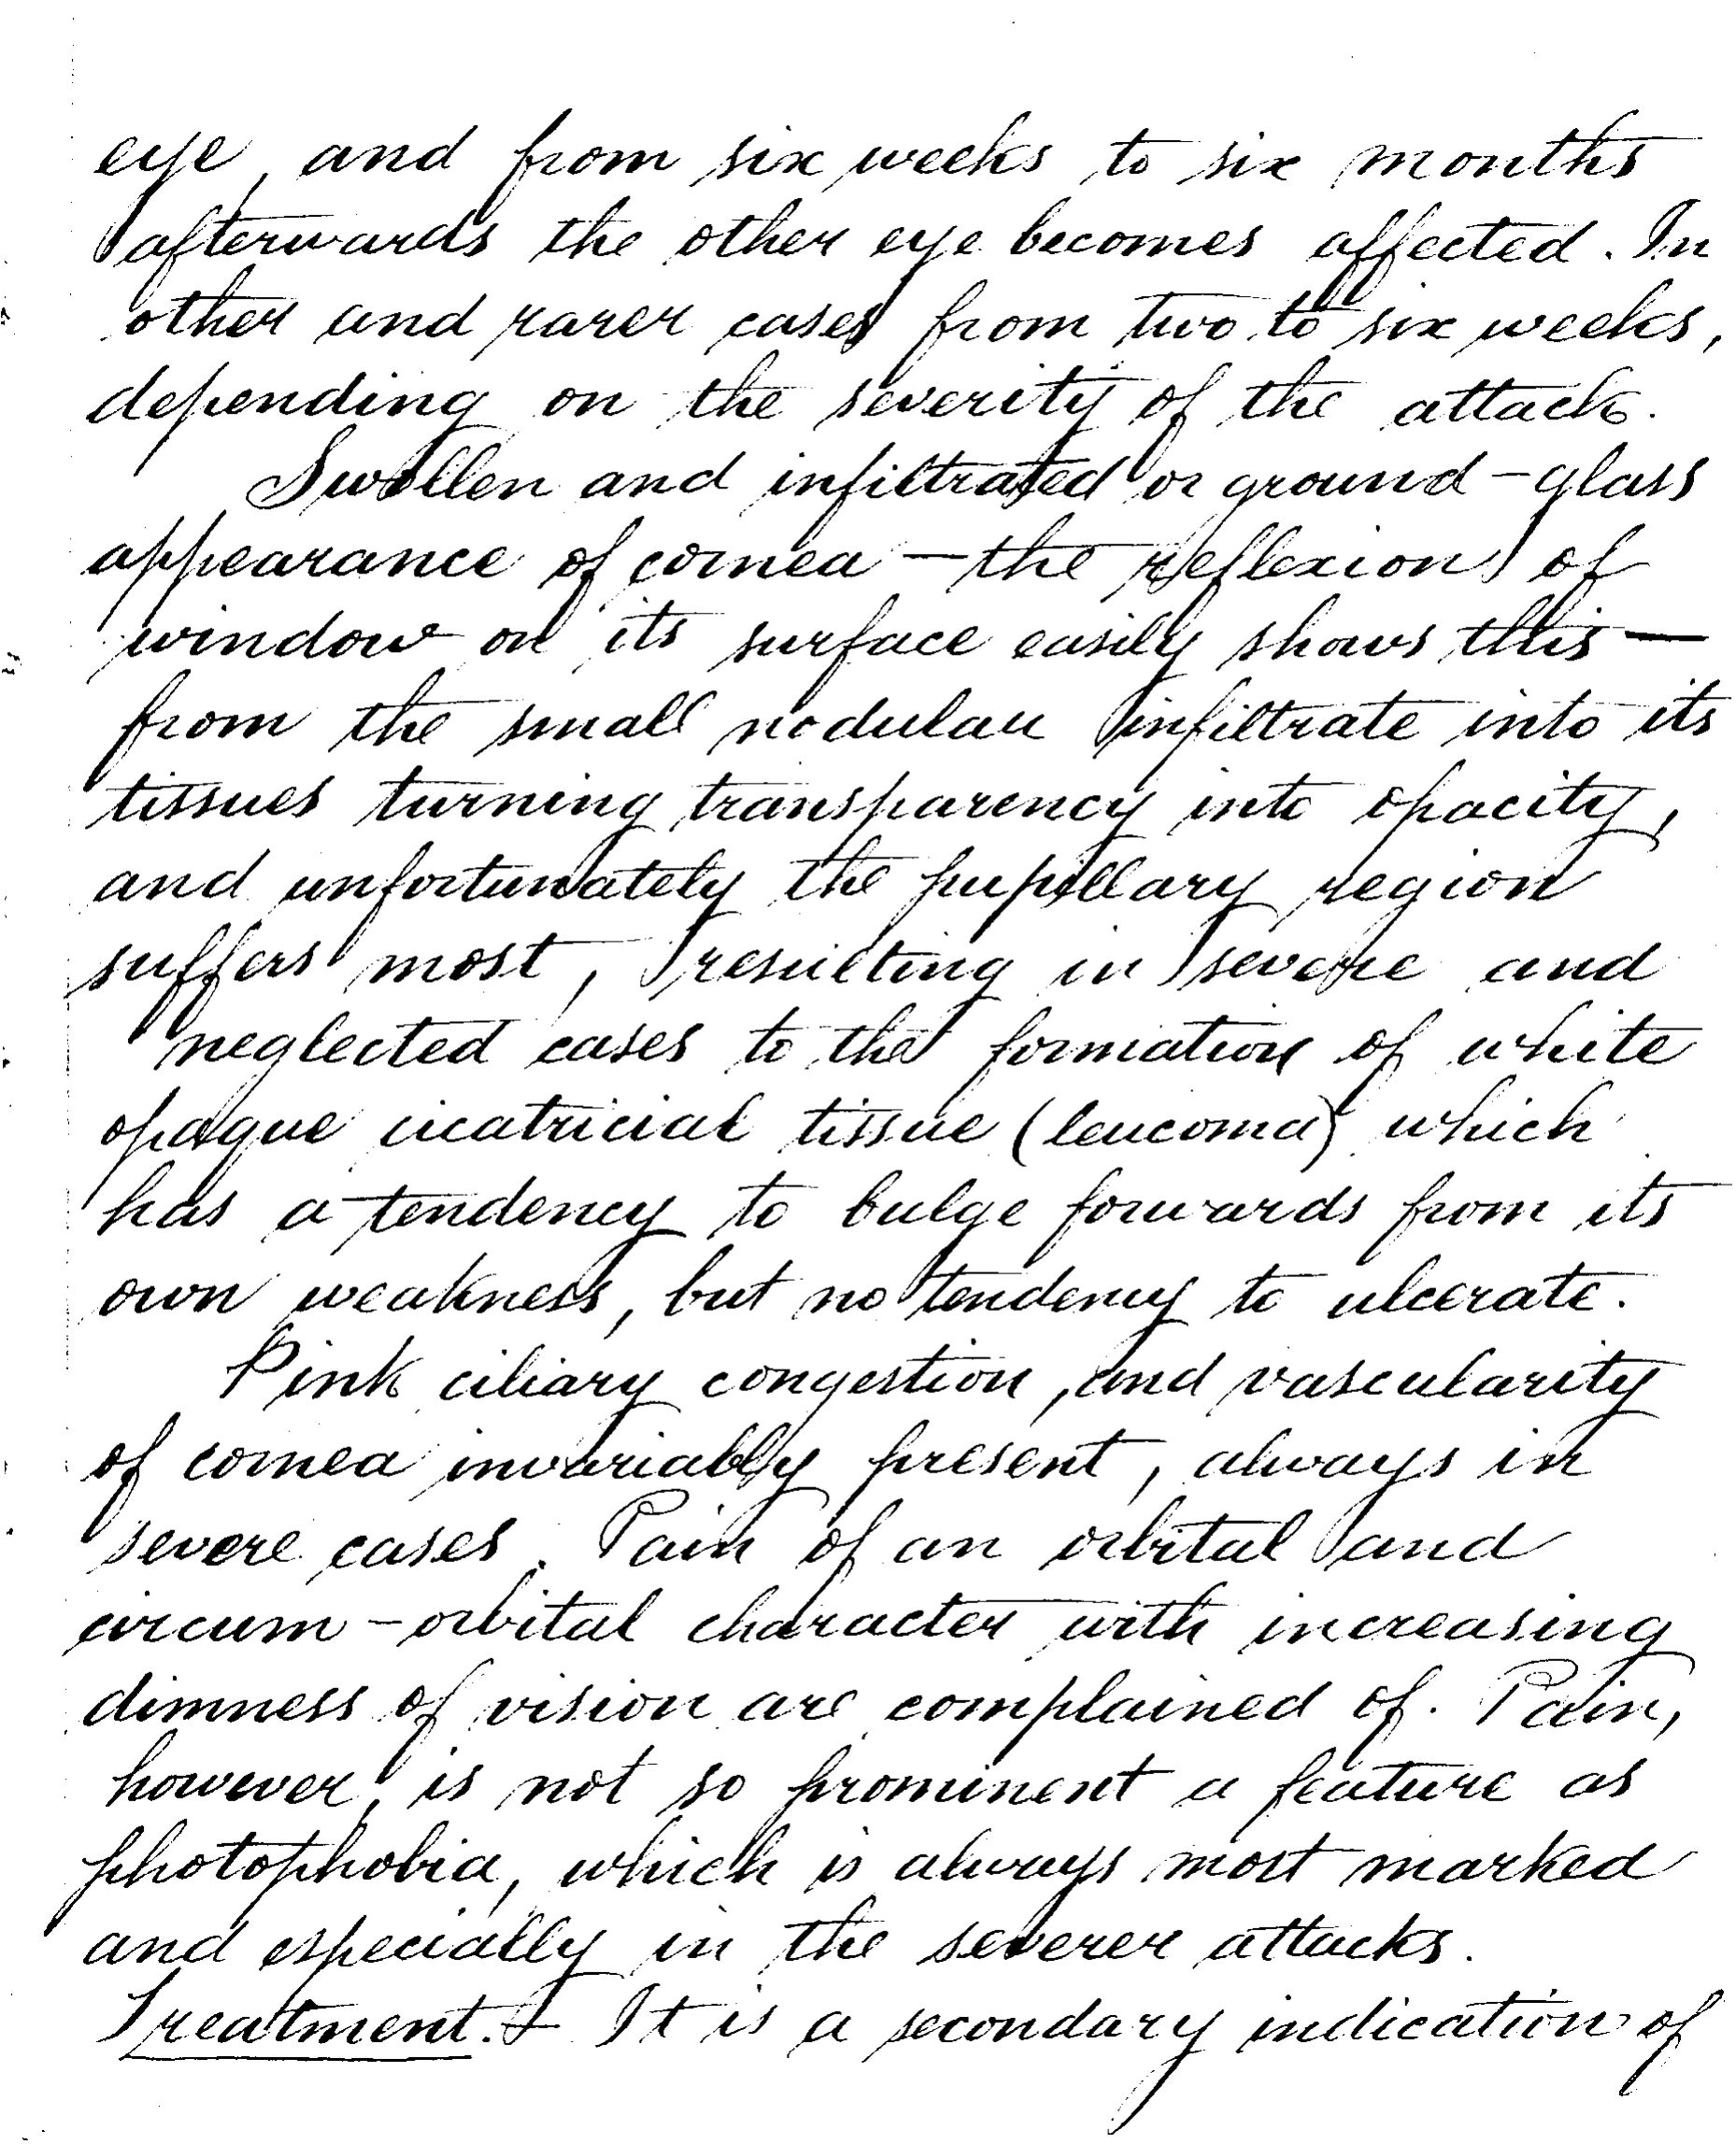 eye, and from six weeks to six months
afterwards the other eye becomes affected. In
other and rarer cases from two to six weeks,
depending on the severity of the attack.
Swollen and infiltrated or ground-glass
appearance of cornea — the reflexion of
window on its surface easily shows this —
from the small nodular infiltrate into its
tissues turning transparency into opacity,
and unfortunately the pupillary region
suffers most, resulting in severe and
neglected cases to the formation of white
opaque cicatricial tissue (leucoma) which
has a tendency to bulge forwards from its
own weakness, but no tendency to ulcerate.
Pink ciliary congestion, and vascularity
of cornea invariably present, always in
severe cases. Pain of an orbital and
circum-orbital character with increasing
dimness of vision are complained of. Pain,
however, is not so prominent a feature as
photophobia, which is always most marked
and especially in the severer attacks.
Treatment.— It is a secondary indication of